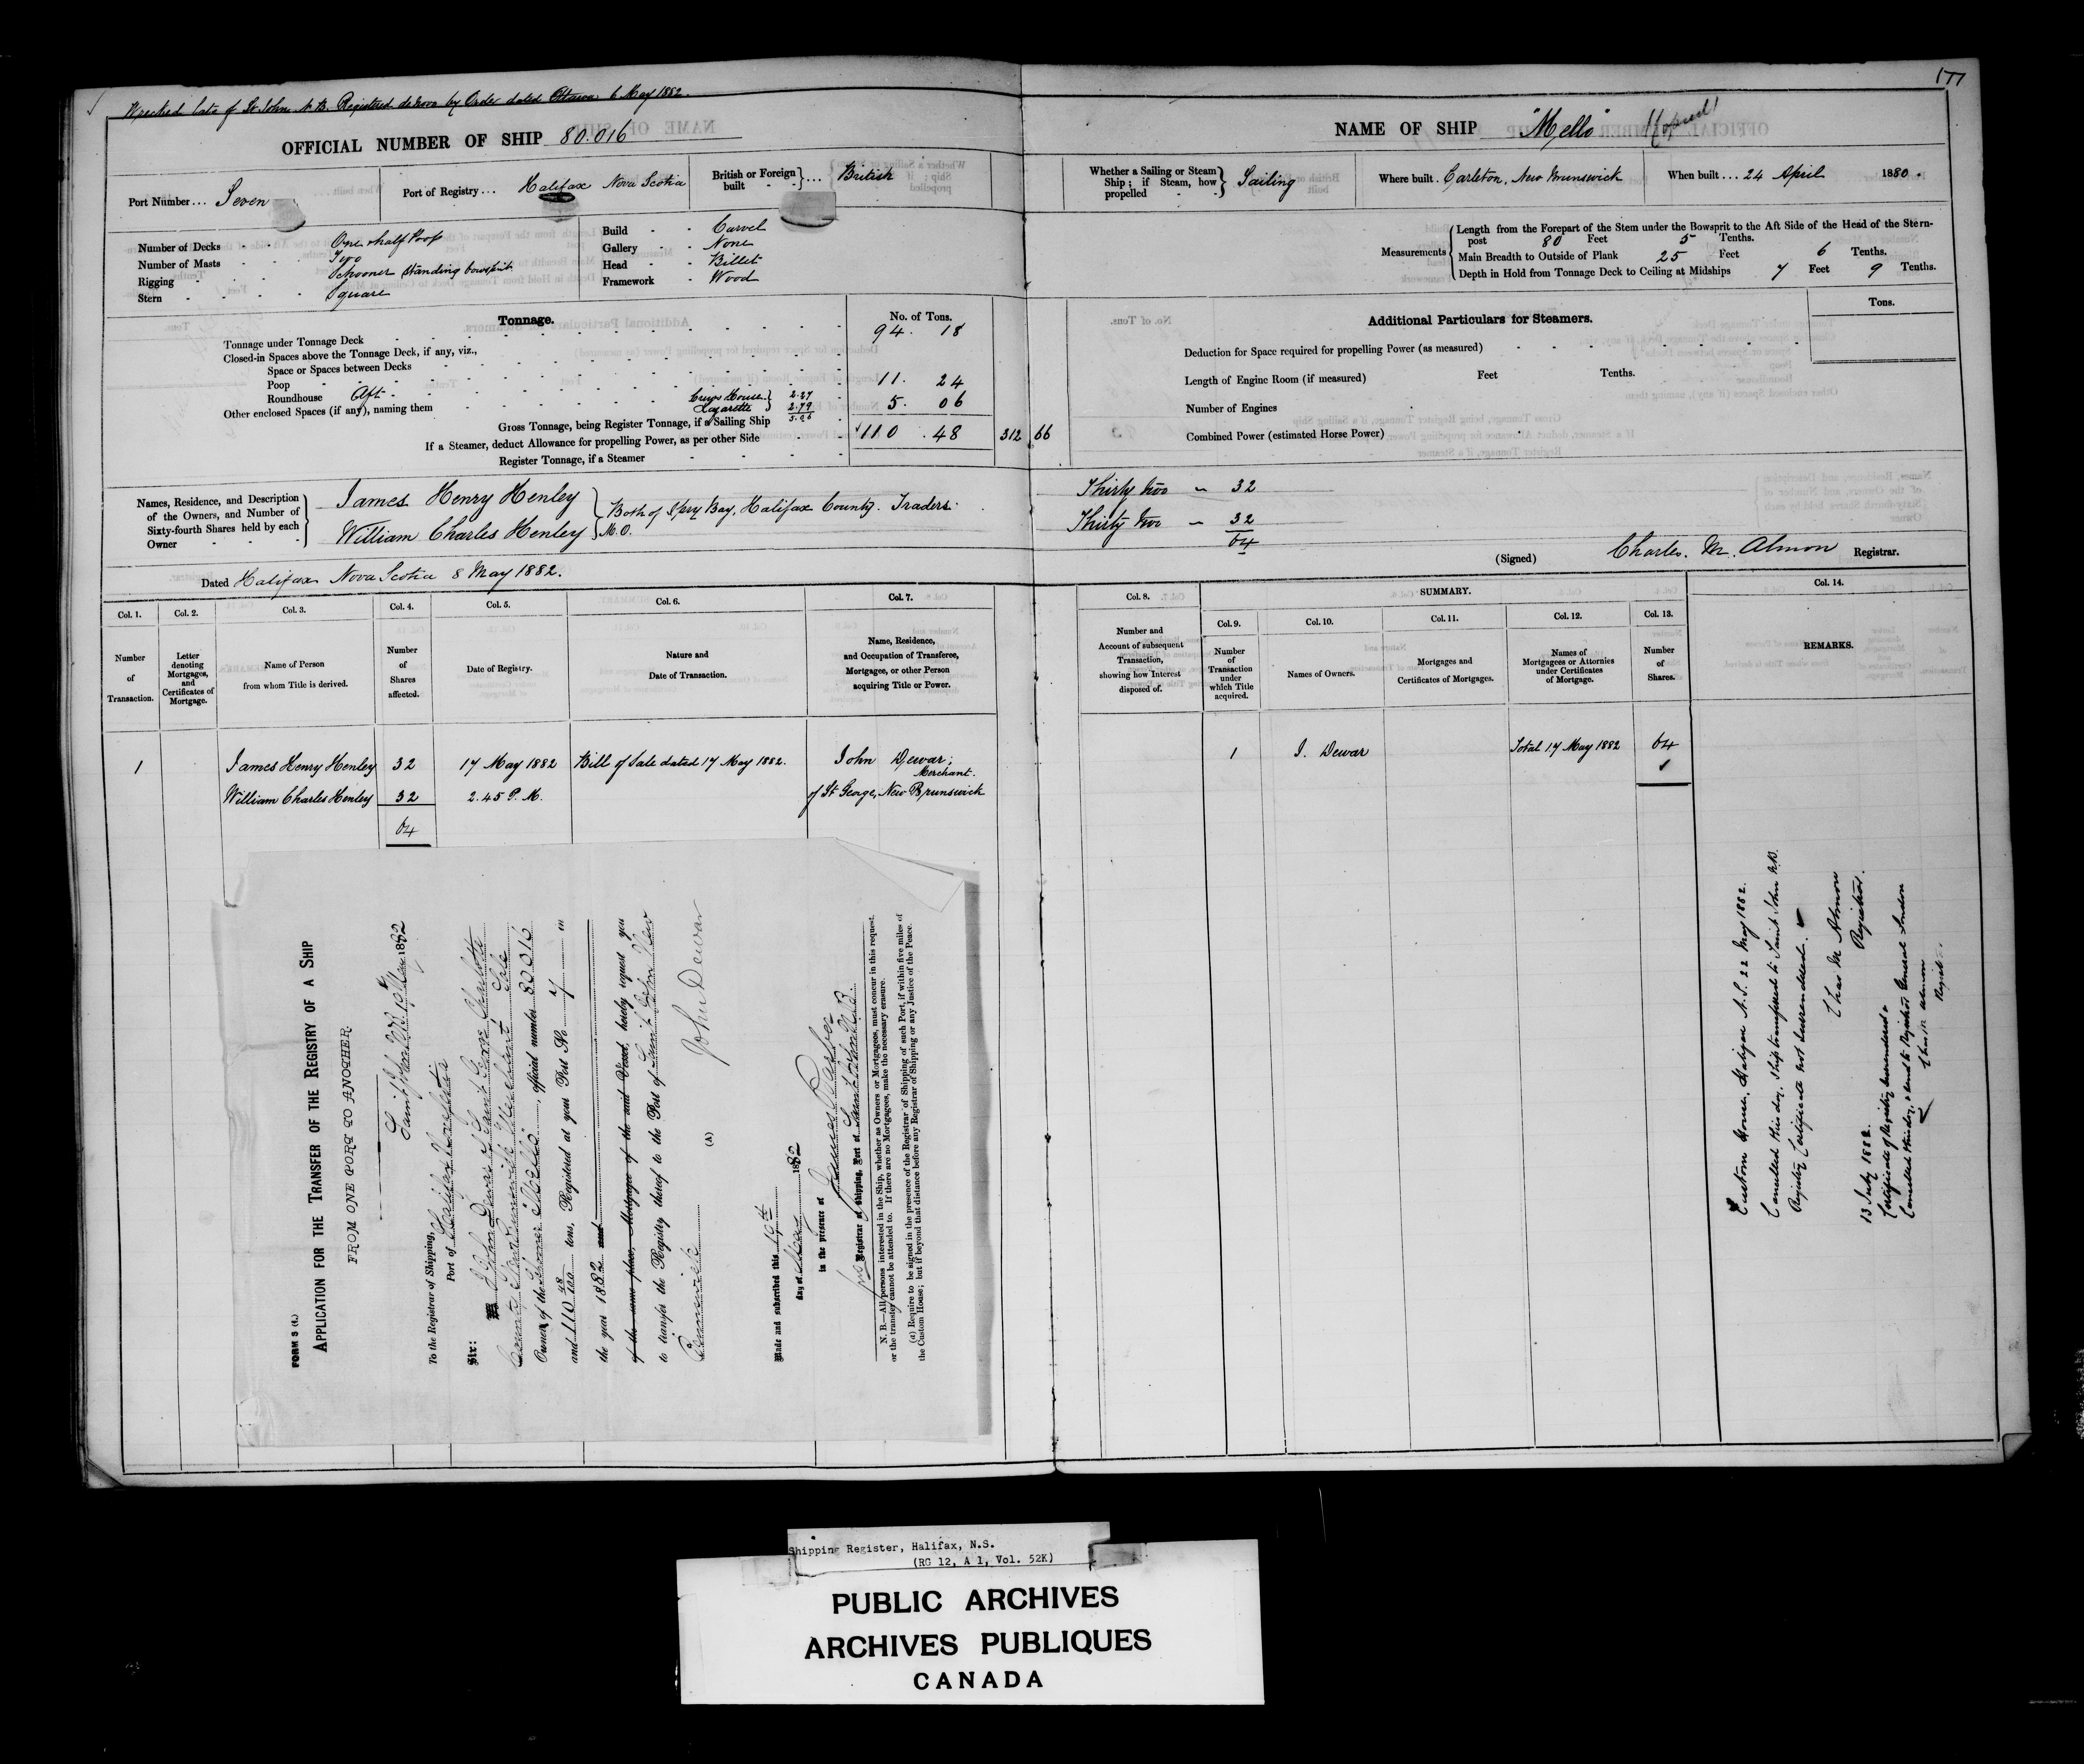 177
Wrecked late of St John N.B. Registered de novo by Order dated Ottawa 6 May 1882.
OFFICIAL NUMBER OF SHIP 80.016
NAME OF SHIP "Mello"
Port Number... Seven
Port of Registry... Halifax Nova Scotia
British or Foreign built ... British
Whether a Sailing or Steam Ship; if Steam, how propelled Sailing
Where built. Carleton, New Brunswick
When built... 24 April 1880.
Number of Decks One & half Poop
Number of Masts Two
Rigging Schooner Standing bowsprit
Stern Square
Build Carvel
Gallery None
Head Billet
Framework Wood
Measurements
Length from the Forepart of the Stem under the Bowsprit to the Aft Side of the Head of the Stern-
post 80 Feet 5 Tenths.
Main Breadth to Outside of Plank 25 Feet 6 Tenths.
Depth in Hold from Tonnage Deck to Ceiling at Midships 7 Feet 9 Tenths.
Tonnage.
No. of Tons.
Tonnage under Tonnage Deck 94. 18
Closed-in Spaces above the Tonnage Deck, if any, viz.,
Space or Spaces between Decks
Poop 11. 24
Roundhouse Aft
Other enclosed Spaces (if any), naming them
Crews House 2.27
Lazarette 2.79
5.06
5. 06
Gross Tonnage, being Register Tonnage, if a Sailing Ship 110 . 48
312 66
If a Steamer, deduct Allowance for propelling Power, as per other Side
Register Tonnage, if a Steamer
Additional Particulars for Steamers.
Tons.
Deduction for Space required for propelling Power (as measured)
Length of Engine Room (if measured) Feet Tenths.
Number of Engines
Combined Power (estimated Horse Power)
Names, Residence, and Description
of the Owners, and Number of
Sixty-fourth Shares held by each
Owner
James Henry Henley
William Charles Henley
Both of Spry Bay, Halifax County. Traders.
M.O.
Thirty two 32
Thirty two 32
64
(Signed) Charles. M. Almon Registrar.
Dated Halifax Nova Scotia 8 May 1882.
Col. 1. Col. 2. Col. 3. Col. 4. Col. 5. Col. 6. Col. 7.
Number of Transaction.
Letter denoting Mortgages, and Certificates of Mortgage.
Name of Person from whom Title is derived.
Number of Shares affected.
Date of Registry.
Nature and Date of Transaction.
Name, Residence, and Occupation of Transferee, Mortgagee, or other Person acquiring Title or Power.
Col. 8.
SUMMARY.
Col. 9. Col. 10. Col. 11. Col. 12. Col. 13.
Col. 14.
Number and Account of subsequent Transaction, showing how Interest disposed of.
Number of Transaction under which Title acquired.
Names of Owners.
Mortgages and Certificates of Mortgages.
Names of Mortgagees or Attornies under Certificates of Mortgage.
Number of Shares.
REMARKS.
1 James Henry Henley 32 17 May 1882 Bill of Sale dated 17 May 1882. John Dewar; Merchant.
William Charles Henley 32 2.45 P.M. of St George, New Brunswick
64
1 J. Dewar Total 17 May 1882 64
FORM S (t.)
APPLICATION FOR THE TRANSFER OF THE REGISTRY OF A SHIP
FROM ONE PORT TO ANOTHER.
Saint John N.B. 19th May 1882
To the Registrar of Shipping,
Port of Halifax Nova Scotia
Sir:
I John Dewar of Saint George Charlotte
County New Brunswick Merchant Sole
Owner of the Schooner Mello, official number 80016
and 110 48/100 tons, Registered at your Port No 7 in
the year 1882 and
of the same place, Mortgagee of the said Vessel, hereby request you
to transfer the Registry thereof to the Port of Saint John New
Brunswick
(A) John Dewar
Made and subscribed this 19th
day of May 1882
in the presence of
James Barber
pro Registrar of Shipping, Port of Saint John N.B.
N. B.—All persons interested in the Ship, whether as Owners or Mortgagees, must concur in this request,
or the transfer cannot be attended to. If there are no Mortgagees, make the necessary erasure.
(a) Require to be signed in the presence of the Registrar of Shipping of such Port, if within five miles of
the Custom House; but if beyond that distance before any Registrar of Shipping or any Justice of the Peace.
Custom House, Halifax N.S. 22 May 1882.
Cancelled this day, Ship transferred to Saint John N.B.
Registry Certificate not surrendered.
Chas M Almon
Registrar.
13 July 1882.
Certificate of Registry surrendered &
Cancelled this day, & send to Registrar General London
Chas M Almon
Registr.
Shipping Register, Halifax, N.S.
(RG 12, A 1, Vol. 52K)
PUBLIC ARCHIVES
ARCHIVES PUBLIQUES
CANADA